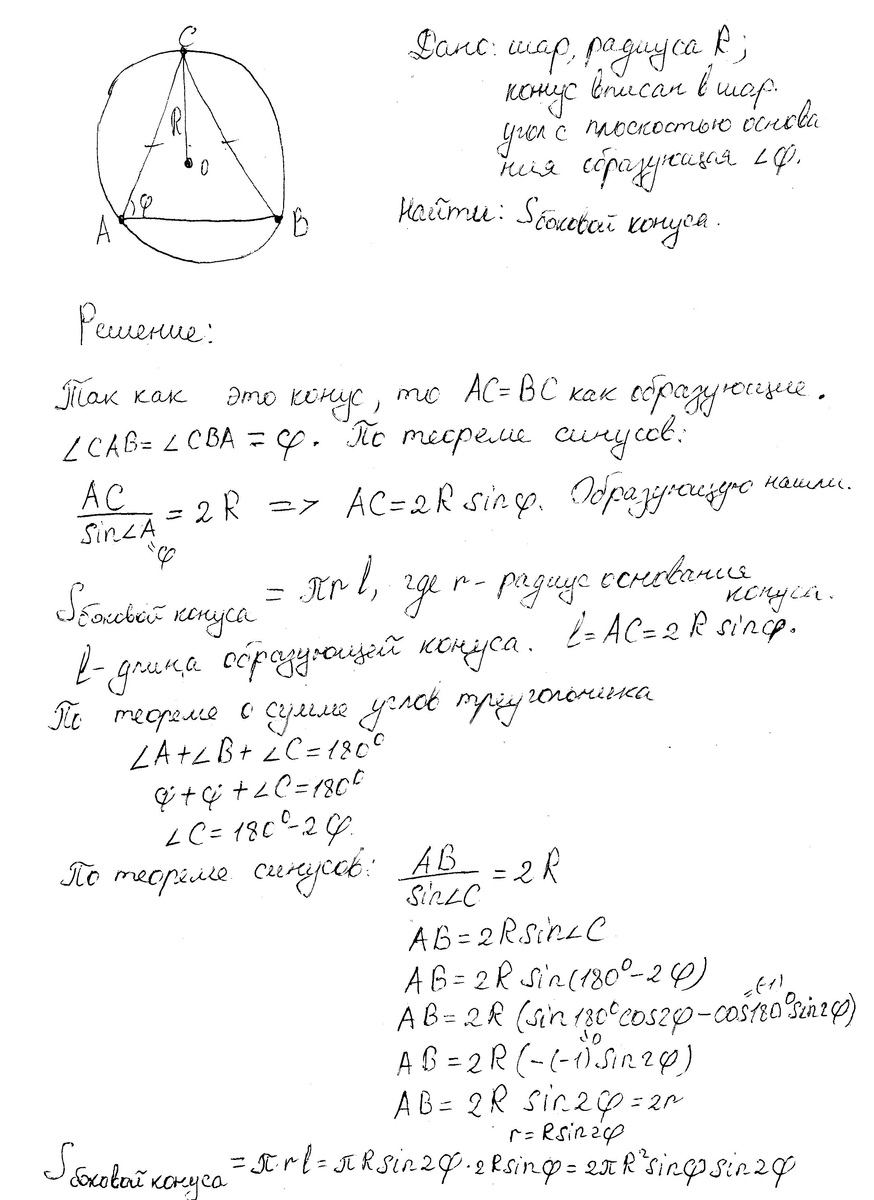 C
R
O
φ
A
B
Дано: шар, радиуса R;
конус вписан в шар.
угол с плоскостью основа
ния образующая ∠φ.
Найти: Sбоковой конуса.
Решение:
Так как это конус, то AC=BC как образующие.
∠CAB=∠CBA=φ. По теореме синусов:
AC/sin∠A = 2R => AC=2R sinφ. Образующую нашли.
=φ
Sбоковой конуса = πrl, где r - радиус основания
конуса.
l - длина образующей конуса. l=AC=2R sinφ.
По теореме о сумме углов треугольника
∠A+∠B+∠C=180°
φ+φ+∠C=180°
∠C=180°-2φ.
По теореме синусов: AB/sin∠C = 2R
AB=2R sin∠C
AB=2R sin(180°-2φ)
=(-1)
AB=2R (sin180°cos2φ-cos180°sin2φ)
=0
AB=2R(-(-1)sin2φ)
AB=2R sin2φ=2r
r=Rsin2φ
Sбоковой конуса=πrl=πRsin2φ·2Rsinφ=2πR²sinφsin2φ